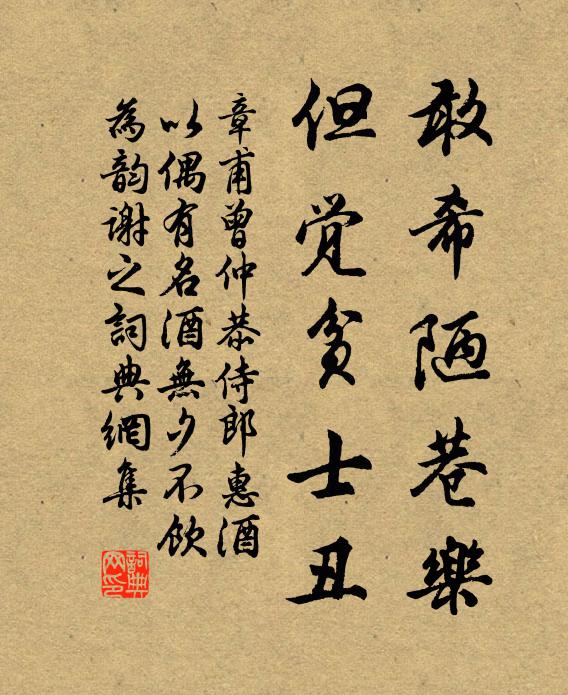 敢希陋巷樂
但觉貧士丑
章甫曾仲恭侍郎惠酒
以偶有名酒無夕不飲
為韵謝之詞典網集
詞典網印